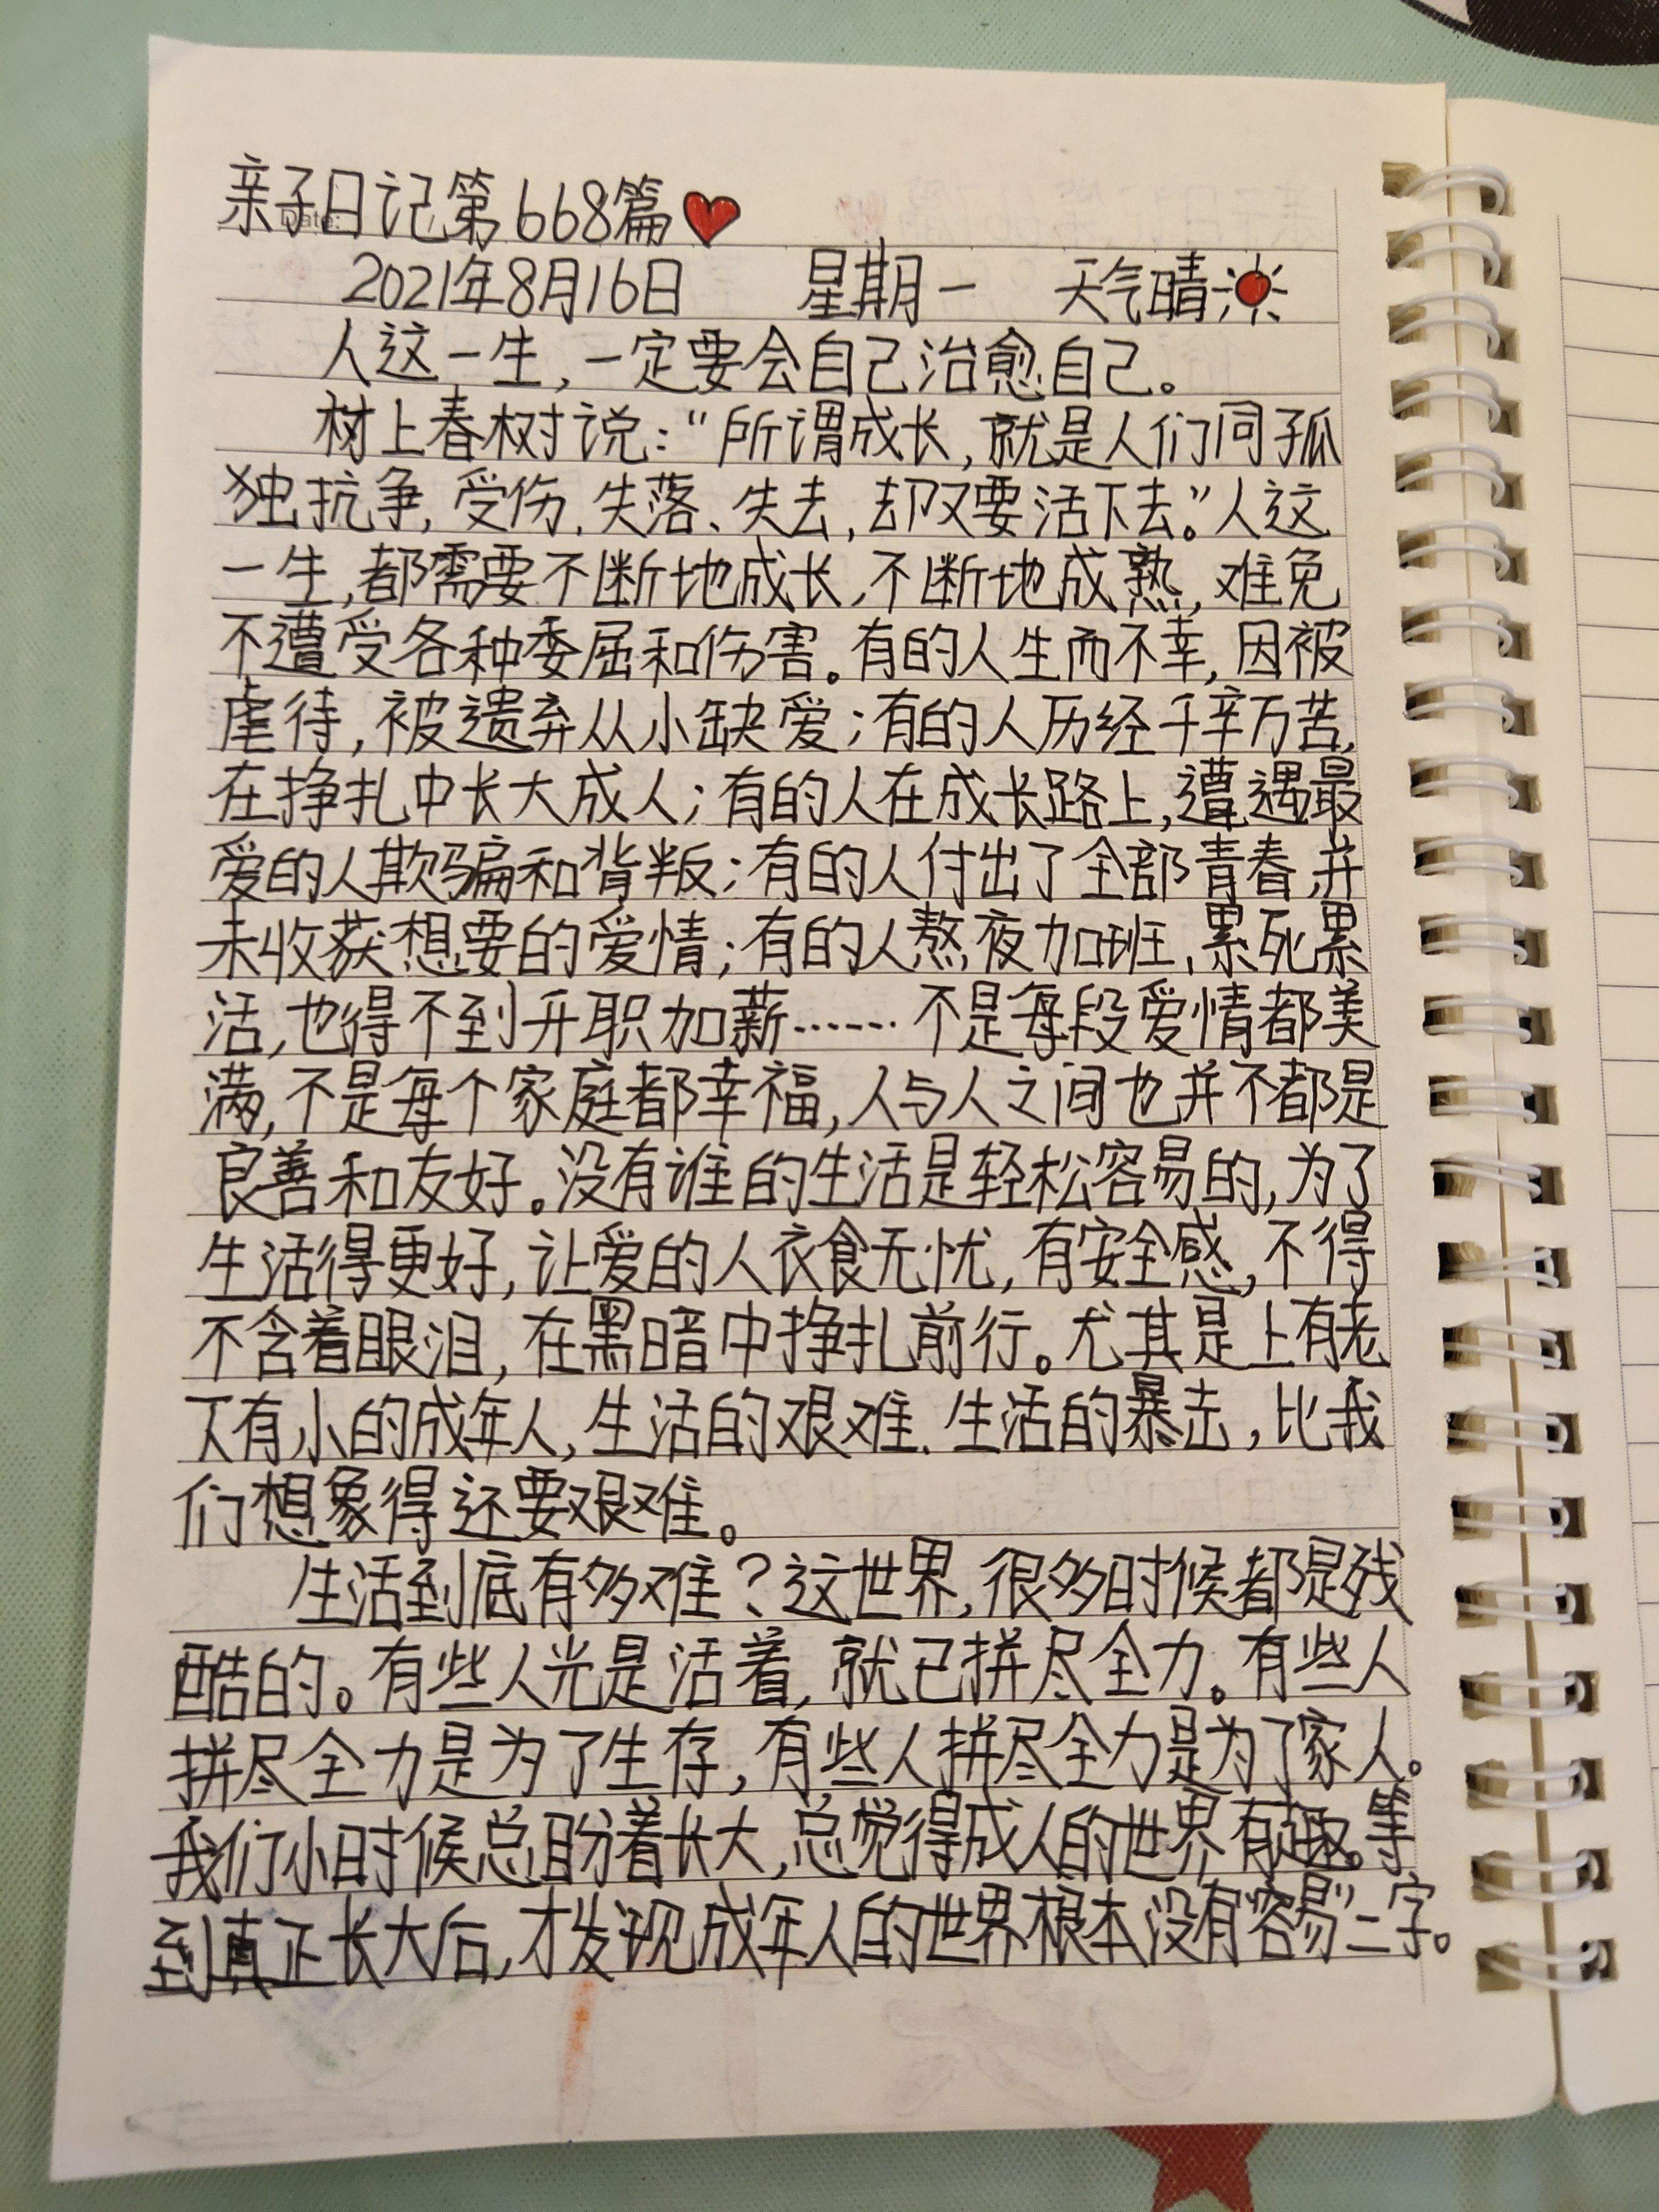 亲子日记第668篇
2021年8月16日 星期一 天气晴
人这一生,一定要会自己治愈自己。
树上春树说:“所谓成长,就是人们同孤
独抗争,受伤,失落、失去,却又要活下去。”人这
一生,都需要不断地成长,不断地成熟,难免
不遭受各种委屈和伤害。有的人生而不幸,因被
虐待,被遗弃从小缺爱;有的人历经千辛万苦,
在挣扎中长大成人;有的人在成长路上,遭遇最
爱的人欺骗和背叛;有的人付出了全部青春,并
未收获想要的爱情;有的人熬夜加班,累死累
活,也得不到升职加薪……不是每段爱情都美
满,不是每个家庭都幸福,人与人之间也并不都是
良善和友好。没有谁的生活是轻松容易的,为了
生活得更好,让爱的人衣食无忧,有安全感,不得
不含着眼泪,在黑暗中挣扎前行。尤其是上有老
下有小的成年人,生活的艰难、生活的暴击,比我
们想象得还要艰难。
生活到底有多难?这世界,很多时候都是残
酷的。有些人光是活着,就已拼尽全力。有些人
拼尽全力是为了生存,有些人拼尽全力是为了家人。
我们小时候总盼着长大,总觉得成人的世界有趣。等
到真正长大后,才发现成年人的世界根本没有“容易”二字。